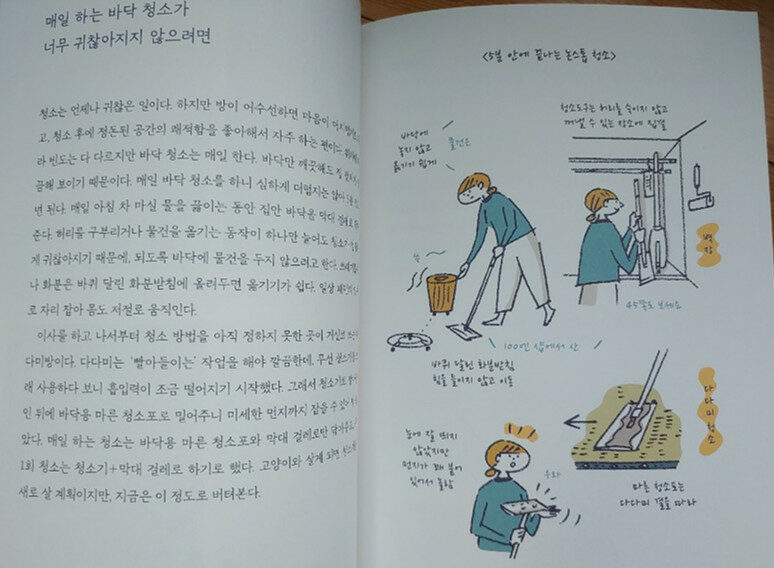 매일 하는 바닥 청소가
너무 귀찮아지지 않으려면
청소는 언제나 귀찮은 일이다. 하지만 방이 어수선하면 마음이
고, 청소 후에 정돈된 공간의 쾌적함을 좋아해서 자주 하는 편이다.
라 빈도는 다 다르지만 바닥 청소는 매일 한다. 바닥만 깨끗해도 집
끔해 보이기 때문이다. 매일 바닥 청소를 하니 심하게 더럽지는 않아
면 된다. 매일 아침 차 마실 물을 끓이는 동안 집안 바닥을 막대 걸레로
준다. 허리를 구부리거나 물건을 옮기는 동작이 하나만 늘어도 청소가
게 귀찮아지기 때문에, 되도록 바닥에 물건을 두지 않으려고 한다.
나 화분은 바퀴 달린 화분받침에 올려두면 옮기기가 쉽다. 일상
로 자리 잡아 몸도 저절로 움직인다.
이사를 하고 나서부터 청소 방법을 아직 정하지 못한 곳이 거실과
다미방이다. 다다미는 '빨아들이는' 작업을 해야 깔끔한데, 무선 청소기를
래 사용하다 보니 흡입력이 조금 떨어지기 시작했다. 그래서 청소기로
인 뒤에 바닥용 마른 청소포로 밀어주니 미세한 먼지까지 잡을 수 있
았다. 매일 하는 청소는 바닥용 마른 청소포와 막대 걸레로만
1회 청소는 청소기+막대 걸레로 하기로 했다. 고양이와 살게 되면
새로 살 계획이지만, 지금은 이 정도로 버텨본다.
<5분 안에 끝나는 논스톱 청소>
바닥에 물건은
놓지 않고
옮기기 쉽게
청소도구는 허리를 숙이지 않고
꺼낼 수 있는 장소에 집결
벽장
쓱
45쪽도 보세요
100엔 샵에서 산
바퀴 달린 화분받침
힘을 들이지 않고 이동
다다미 청소
눈에 잘 띄지
않았지만
먼지가 꽤 붙어
있어서 놀람
우와
마른 청소포는
다다미 결을 따라